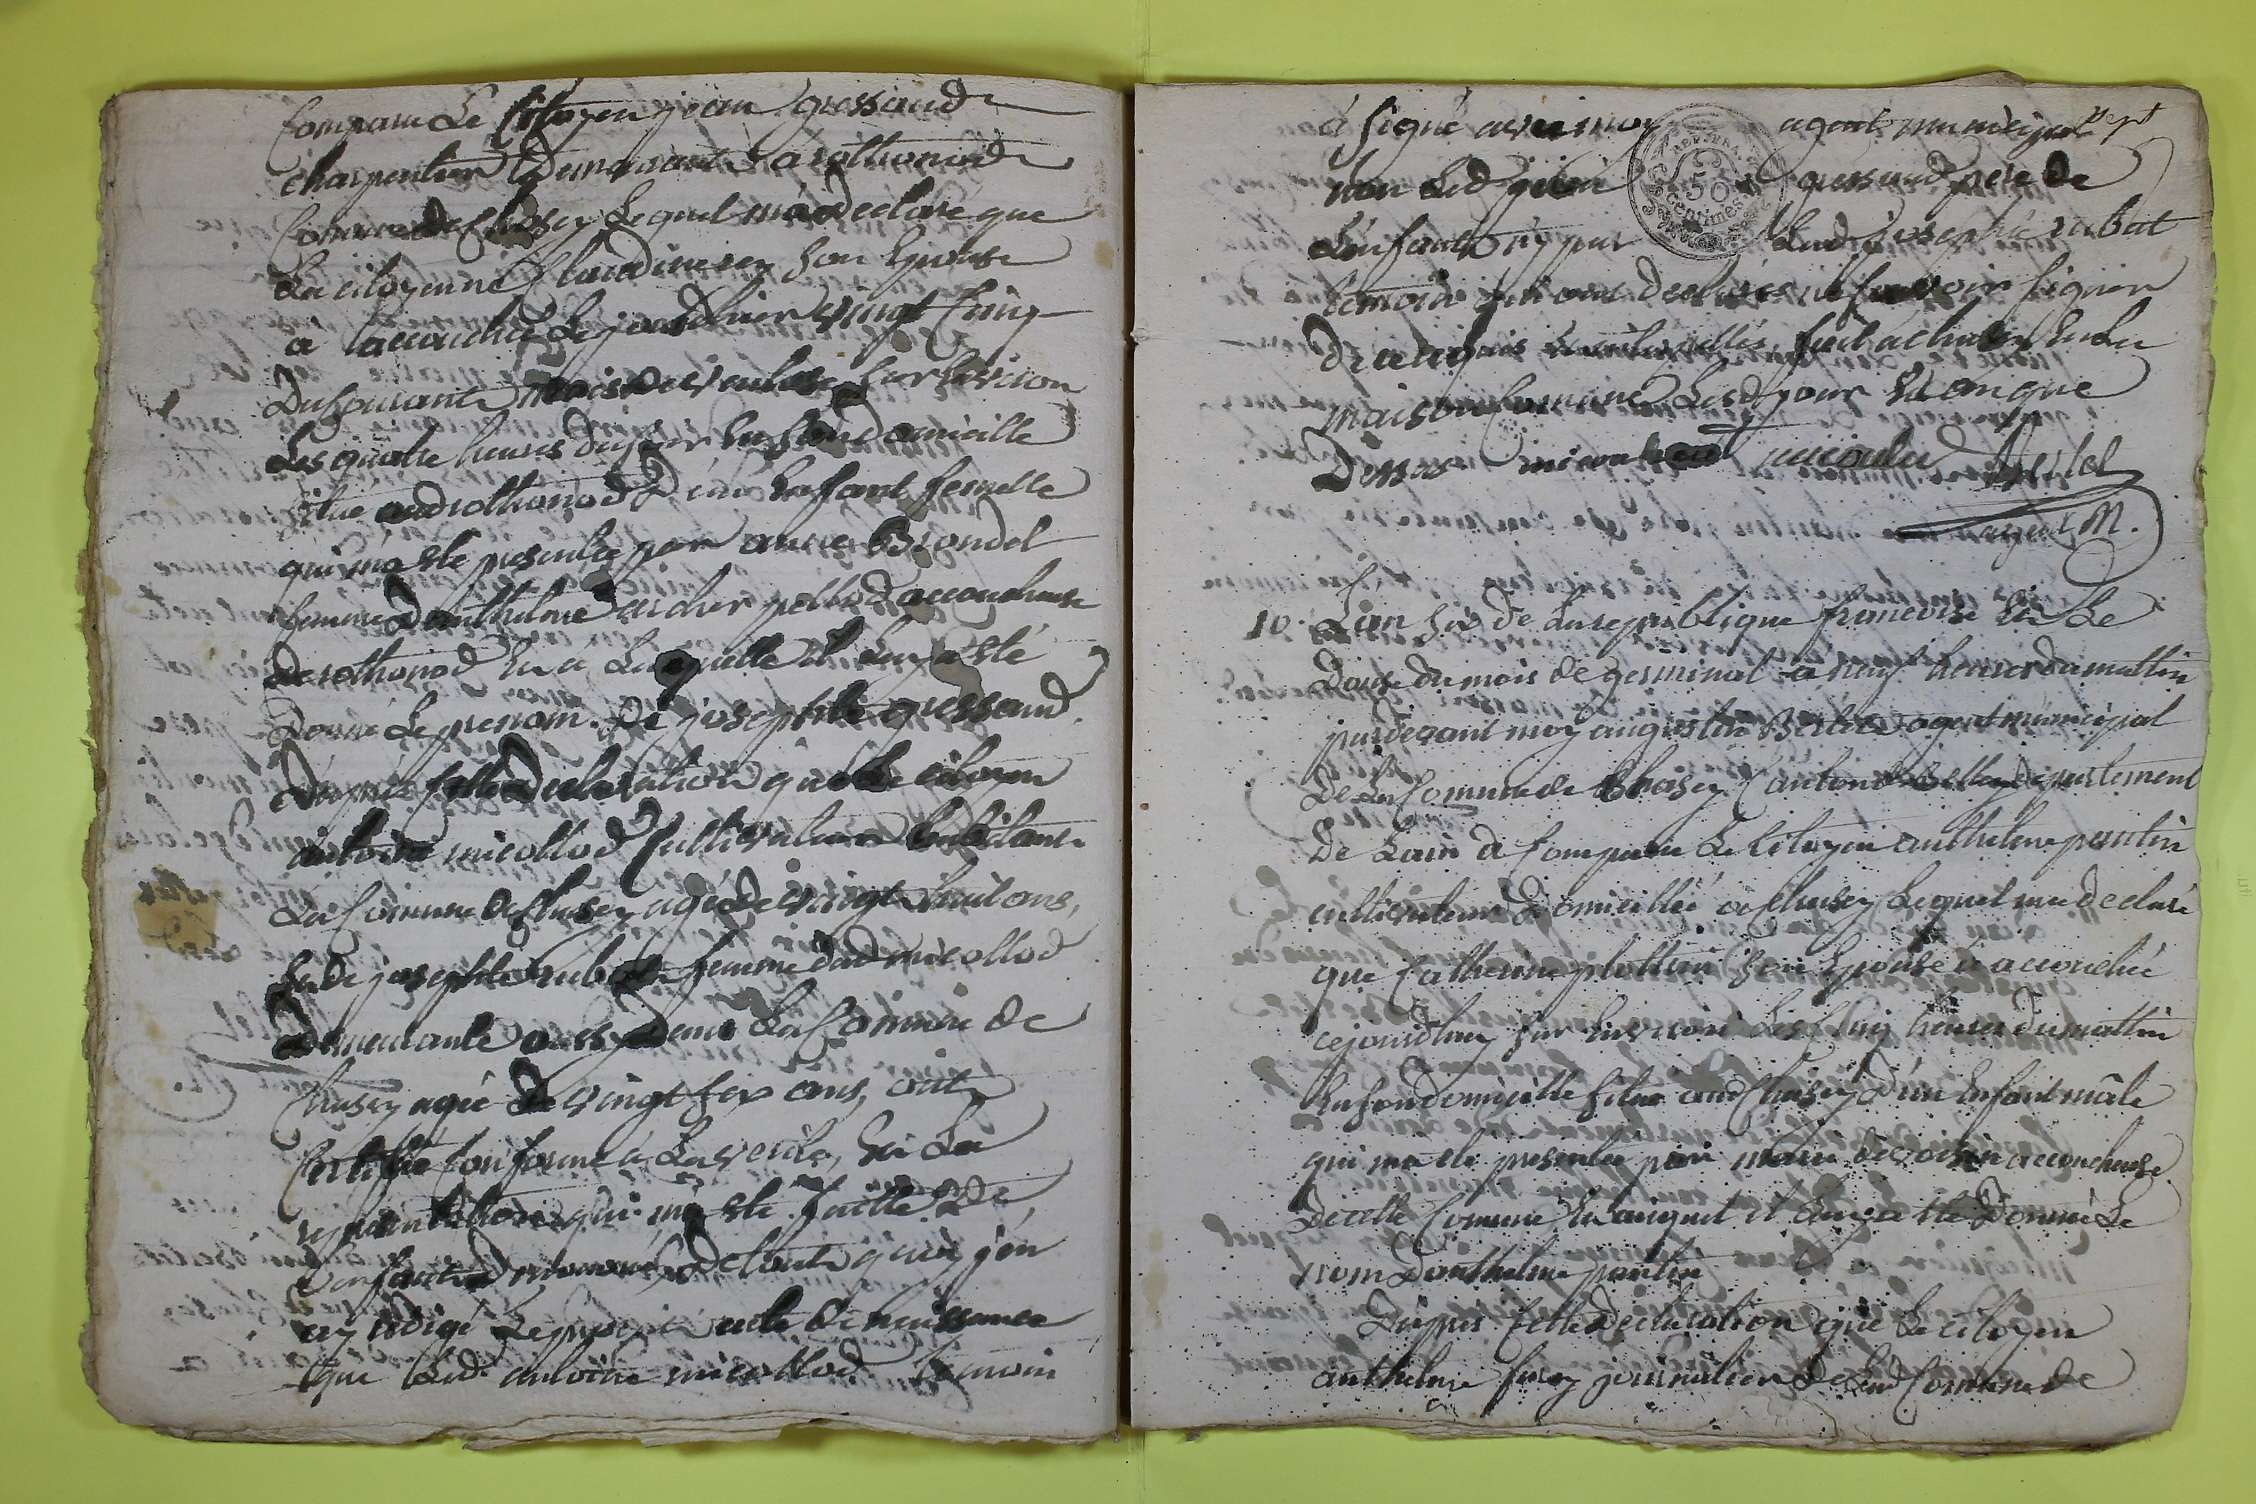 Comparu Le Citoyen jean gressaud
charpentier Demeurant a rothonod
Comune de Chasey Lequel m'a declaré que
La citoyenne Claudine rey son Epouse
a accouchée Le jour d'hier vingt cinq
Du Courant mois de ventose sur Environ
Les quatre heures du soir En son domicille
situé aud rothonod d'un Enfant femelle
qui m'a Eté presentée par anne Brondel
femme d'anthelme pellod accoucheuse
de rothonod Et a Laquelle il Luy a Eté
Donné Le prenom De josephte gressaud
D'apres Cette Declaration que Le citoyen
antoine micollod Cultivateur habitant
La Comune de Chasey agé de vingt huit ans,
Et de josephte rubat femme dud micollod
Demeurante aussy dans La Comune de
Chasey agée de vingt six ans, ont
Certifié Conforme a La verité, Et La
representation qui m'a Eté faitte de
L'enfant denommé, de tout quoi j'en
ay redigé Le present acte de naissance
que Led. antoine micollod temoin
sept
à signé avec moy agent municipal
non Led jean gressaud pere de
L'enfant ny par Lad josephte rubat
temoin qui ont declarés ne savoir signer
De ce requis Et interpellés, fait a chasey En La
maison Comune Lesd jour Et an que
Dessus micoulaud micoulud Berlet
agent M.
10. L'an six de La republique francoise Et Le
Douze du mois de germinal a neuf heures du mattin
pardevant moy augustin Berlet agent municipal
De La Commune de Chasey Canton de Belley departement
De Lain a Comparu Le Citoyen anthelme pantin
cultivateur Domicillié a Chasey Lequel m'a declaré
que Catherine plottin son Epouse a accouchée
cejourd'huy sur Environ Les Cinq heures du mattin
En son domicille situé aud Chasey d'un Enfant mâle
qui m'a Eté presentée par marie devoisin accoucheuse
De cette Comune Et auquel il Luy a Eté Donné Le
nom D'anthelme pantin
D'apres Cette Declaration que Le citoyen
anthelme furey journalier de Lad Comune de
REP. FRA.
50
centimes